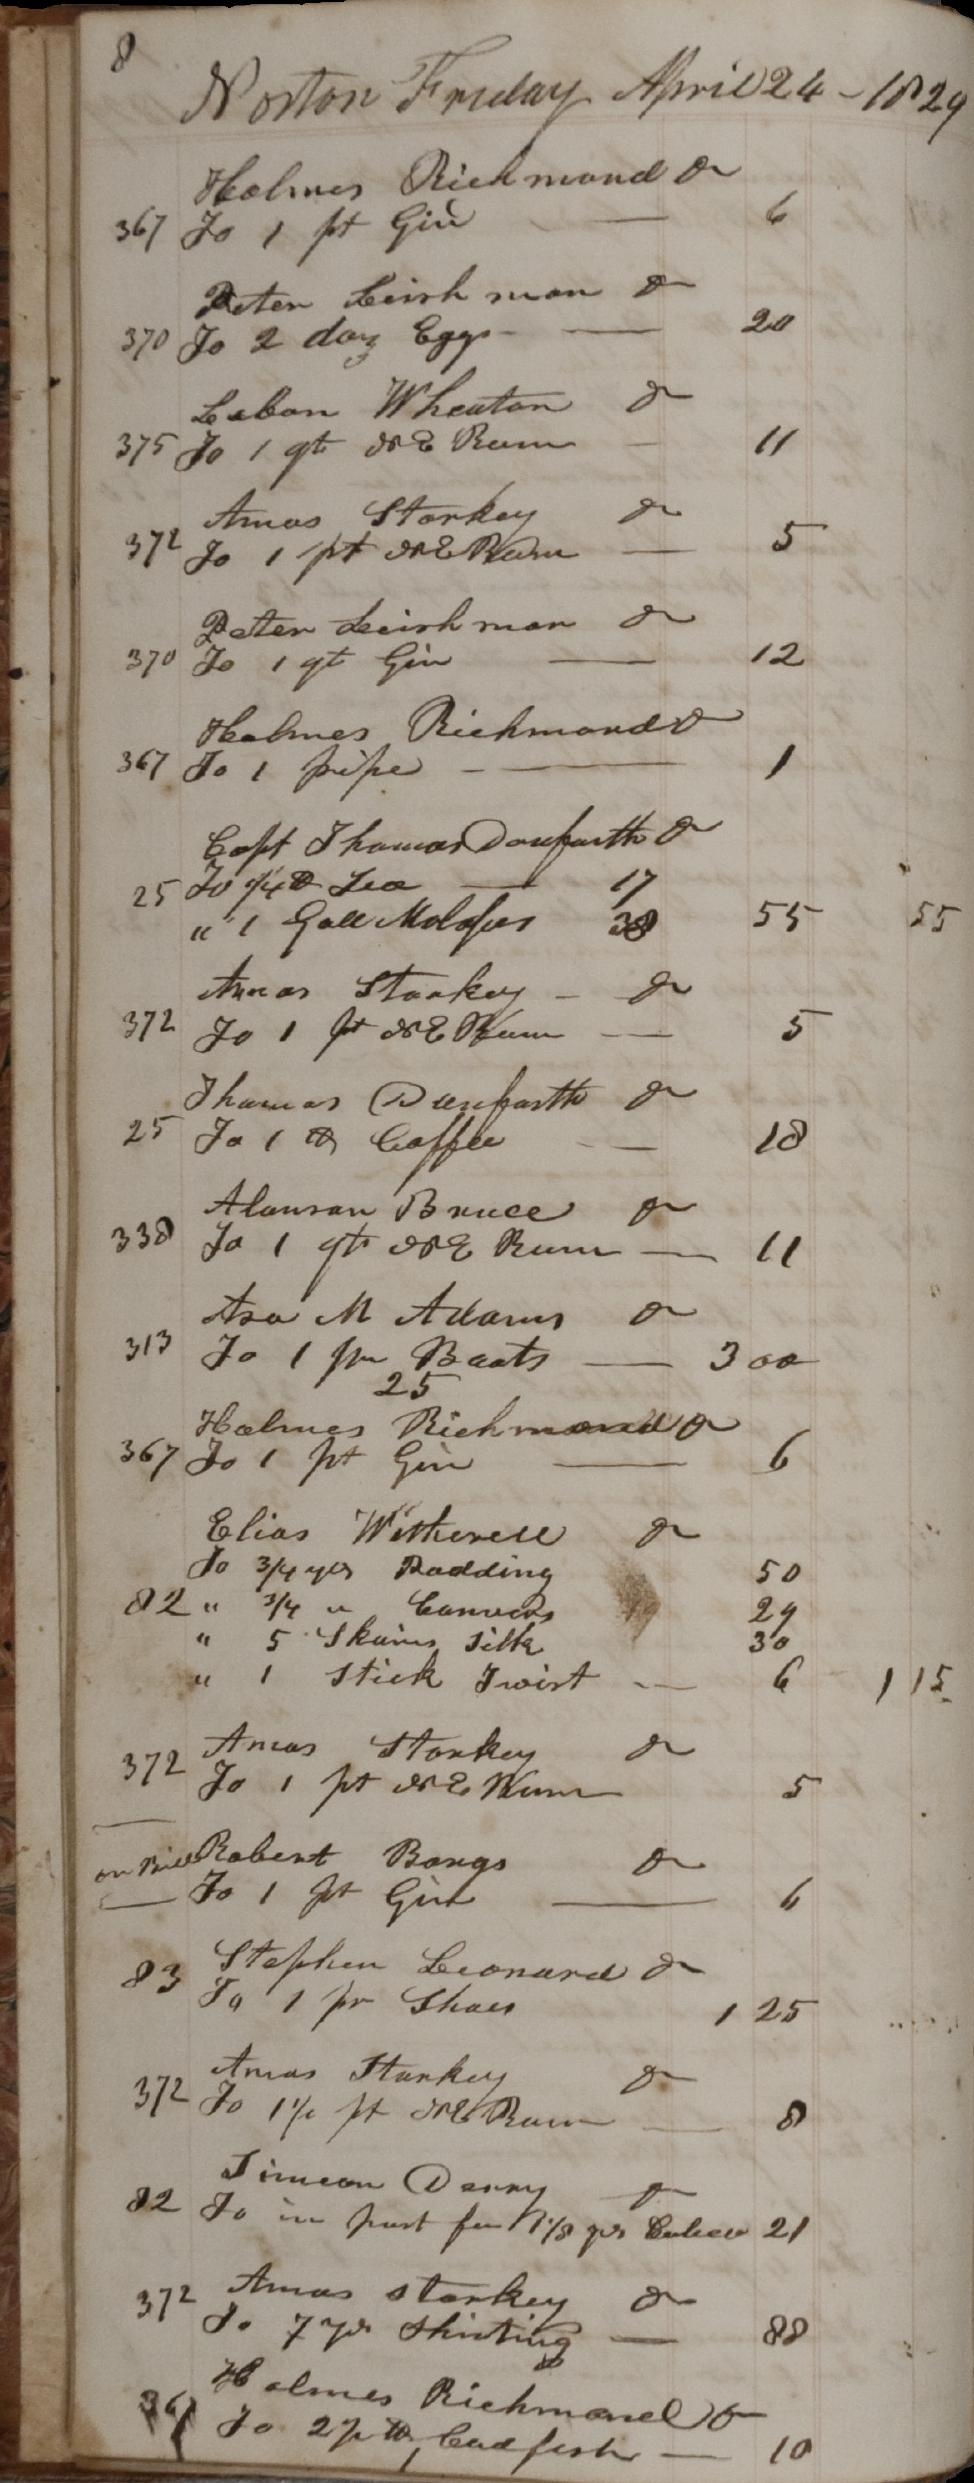 8
Norton Friday April 24 - 1829
Holmes Richmond Dr
367 To 1 pt Gin — 6
Peter Leishman Dr
370 To 2 doz Eggs — 20
Laban Wheaton Dr
375 To 1 qt NE Rum — 11
Amos Starkey Dr
372 To 1 pt NE Rum — 5
Peter Leishman Dr
370 To 1 qt Gin — 12
Holmes Richmond Dr
367 To 1 pipe — 1
Capt Thomas Danforth Dr
25 To 1/4 lb Tea — 17
" 1 Gall Molasses 38 55 55
Amos Starkey - Dr
372 To 1 pt NE Rum — 5
Thomas Danforth Dr
25 To 1 lb Coffee — 18
Alanson Bruce Dr
338 To 1 qt NE Rum — 11
Asa M Adams Dr
313 To 1 pr Boots — 3 00
25
Holmes Richmond Dr
367 To 1 pt Gin — 6
Elias Witherell Dr
To 3/4 yds Padding 50
82 " 3/4 " Canvas 29
" 5 Skains Silk 30
" 1 Stick Twist — 6 1 15
Amos Starkey Dr
372 To 1 pt NE Rum 5
on Bill Robert Bangs Dr
To 1 pt Gin — 6
Stephen Leonard Dr
83 To 1 pr Shoes 1 25
Amos Starkey Dr
372 To 1 1/2 pt NE Rum — 8
Simeon Derry Dr
82 To in part for 1 1/8 yds Calico 21
Amos Starkey Dr
372 To 7 yds Shirting — 88
Holmes Richmond Dr
367 To 2 1/2 lb Codfish — 10